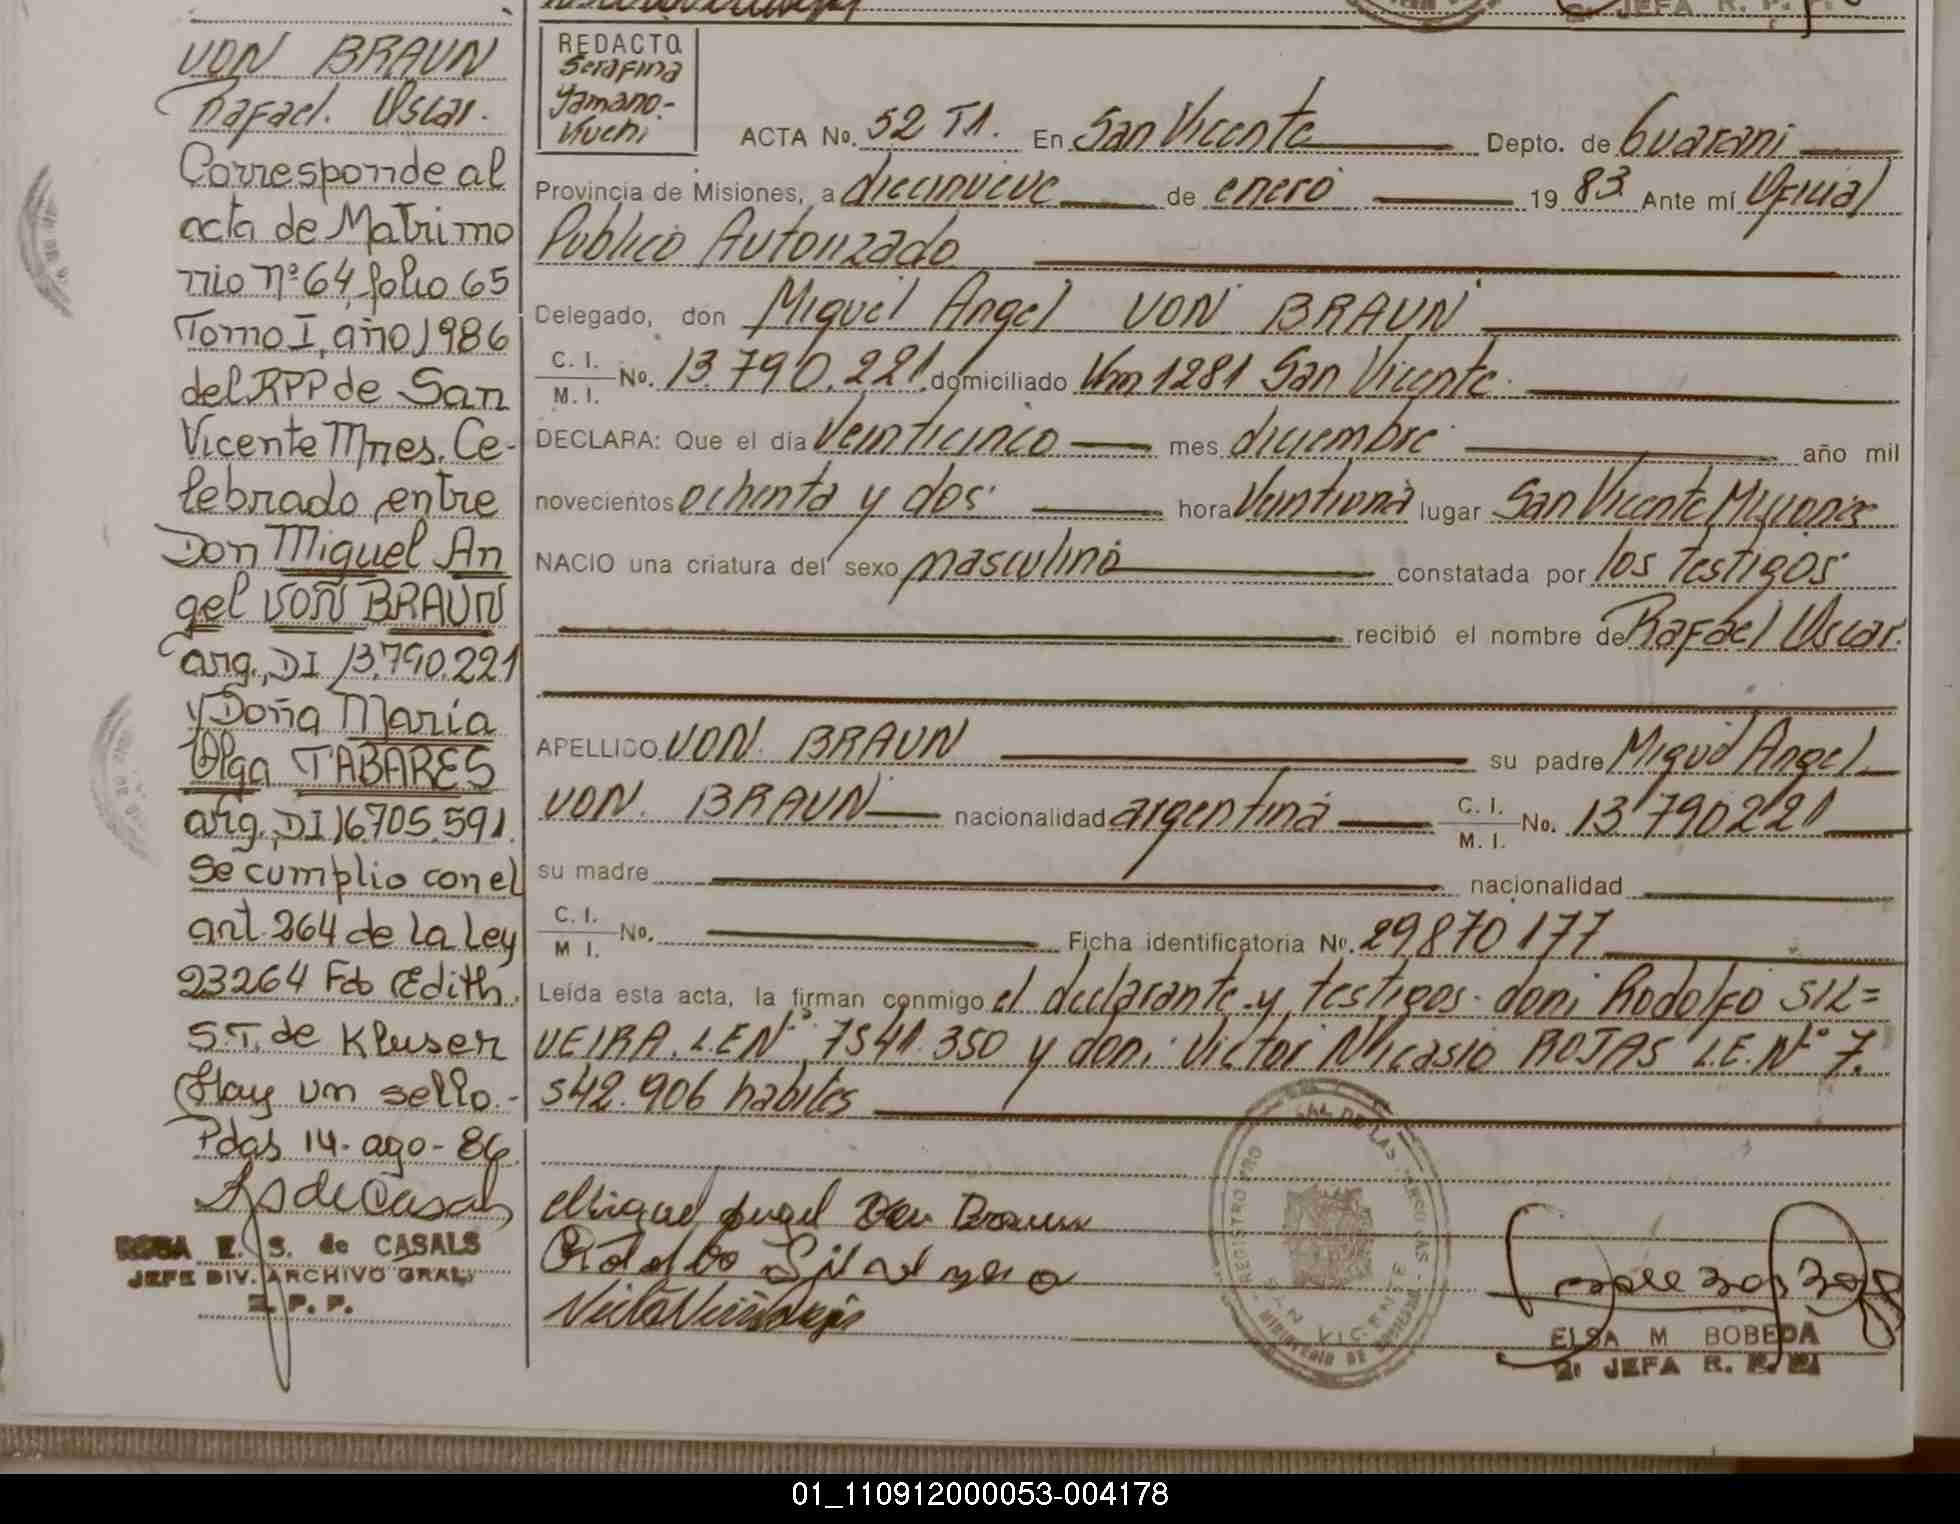 JEFA R. P. P.
VON BRAUN
Rafael. Oscar.
Corresponde al
acta de Matrimo
nio Nº 64, folio 65
Tomo I, año 1986
del RPP de San
Vicente Mnes. Ce-
lebrado entre
Don Miguel An
gel VON BRAUN
arg., DI 13.790.221
y Doña María
Olga TABARES
arg., DI 16.705.591.
Se cumplio con el
art. 264 de la Ley
23264 Fdo Edith.
S.T. de Kluser
(Hay un sello.-
Pdas 14-ago-86
ROSA E. S. de CASALS
JEFE DIV. ARCHIVO GRAL.
R. P. P.
REDACTO
Serafina
Yamano-
Kuchi
ACTA No. 52 T1. En San Vicente Depto. de Guarani
Provincia de Misiones, a diecinueve de enero 19 83 Ante mí Oficial
Publico Autorizado
Delegado, don Miguel Angel VON BRAUN
C. I.
M. I. No. 13.790.221. domiciliado Km 1281 San Vicente
DECLARA: Que el día Veinticinco mes diciembre año mil
novecientos ochenta y dos hora Veintiuna lugar San Vicente Misiones
NACIO una criatura del sexo masculino constatada por los testigos
recibió el nombre de Rafael Oscar.
APELLIDO VON BRAUN su padre Miguel Angel
VON BRAUN nacionalidad argentina C. I.
M. I. No. 13790221
su madre nacionalidad
C. I.
M I. No. Ficha identificatoria No. 29870177
Leída esta acta, la firman conmigo el declarante y testigos don: Rodolfo SIL=
VEIRA. L.E Nº 7541.350 y don: Victor Nicasio ROJAS L.E. Nº 7.
542.906 habiles
Miguel Angel Von Braun
Rodolfo Silveyra
REGISTRO PRO
SAN VICENTE
MINISTERIO DE GOBIERNO
ELSA M BOBEDA
2: JEFA R. P. P.
01_110912000053-004178